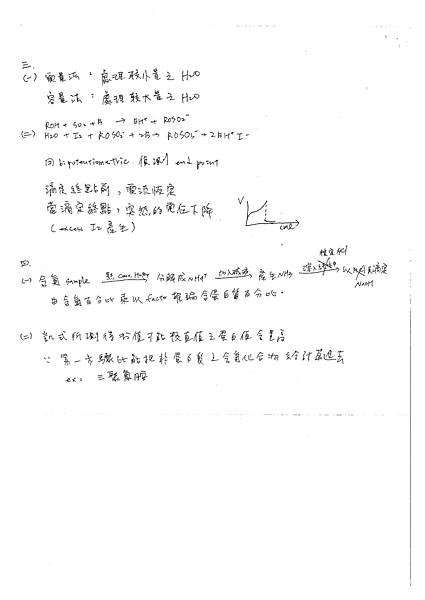 三.
(一) 電量法：處理較小量之 H2O
容量法：處理較大量之 H2O
ROH + SO2 + B → BH+ + ROSO2-
(二) H2O + I2 + ROSO2- + 2B → ROSO3- + 2BH+ I-
用 bipotentiometric 偵測 end point
滴定終點前，電流恆定
當滴定終點，突然的電位下降
(excess I2 產生)
V
四.
(一) 含氮 sample 熱 conc. H2SO4 分解成 NH4+ 加入 產生 NH3 以 滴定
NaOH
由含氮百分比乘以 factor 推論含蛋白質百分比。
(二) 凱式所測得的值可能較真值之蛋白值含量高
∵ 第一步驟可能把非蛋白質之含氮化合物給計算進去
ex. 三聚氰胺